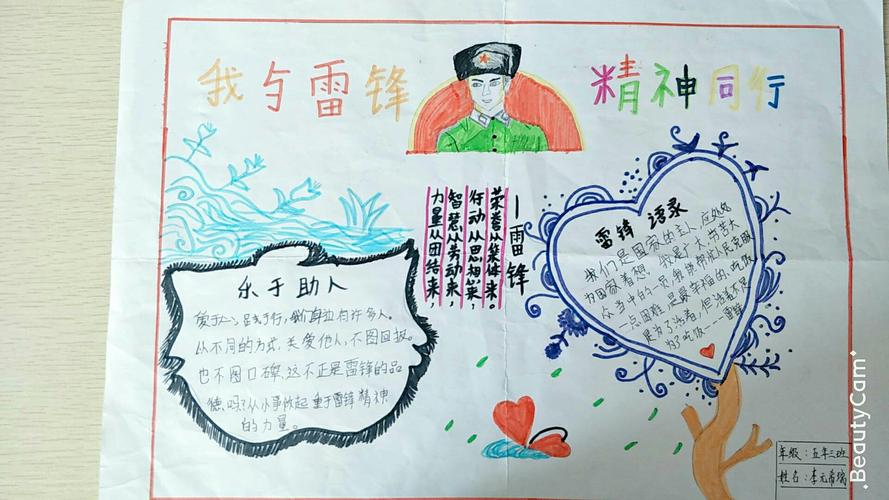 我与雷锋 精神同行
力量从团结来，
智慧从劳动来，
行动从思想来，
荣誉从集体来。
—雷锋
乐于助人
爱于心，践于行，身边有许多人。
从不同的方式，关爱他人，不图回报。
也不图口碑，这不正是雷锋的品
德吗？从小事做起 重于雷锋精神
的力量。
雷锋 语录
我们是国家的主人，应处处
为国家着想。我是广大劳苦大
众当中的一员，我能帮助人民克服
一点困难，是最幸福的。吃饭
是为了活着，但活着不是
为了吃饭——雷锋
年级：五年三班
姓名：李元希瑞
BeautyCam